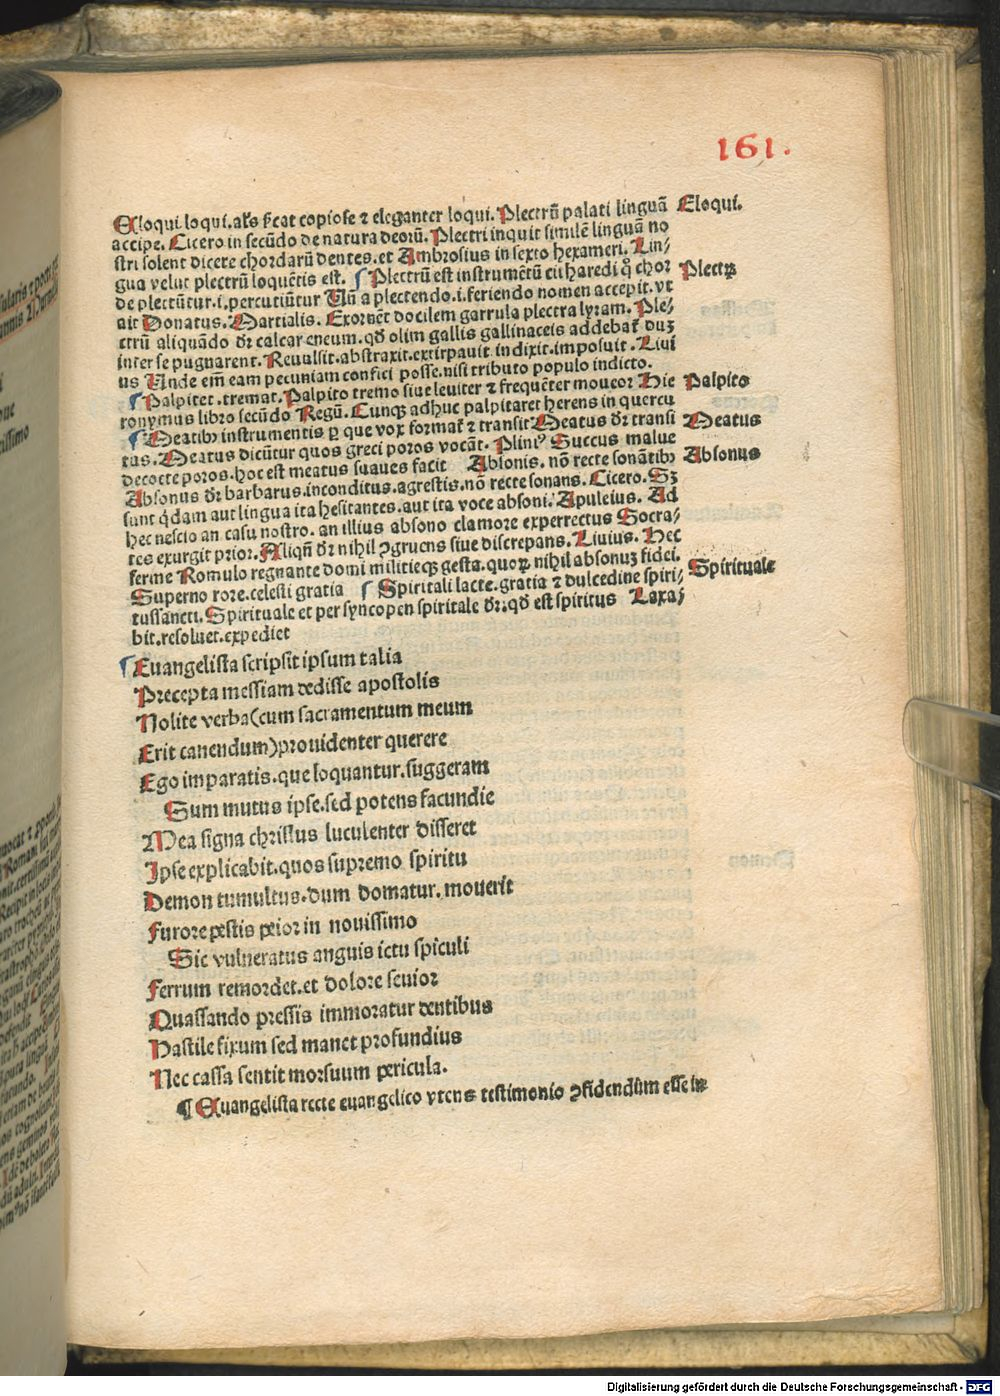 161.
Eloqui loqui. als sͨeat copiose ⁊ eleganter loqui. Plectrū palati linguā Eloqui.
accipe. Cicero in secūdo de natura deorū. Plectri inquit similē linguā no
stri solent dicere chordarū dentes. et Ambrosius in sexto hexameri. Lin⸗
gua velut plectrū loquētis est. Plectrū est instrumētū citharedi quo chor Plectꝝ
de plectūtur .i. percutiūtur Un̄ a plectendo .i. feriendo nomen accepit. vt
ait Donatus. Martialis. Exornēt docilem garrula plectra lyram. Ple⸗
ctrū aliquādo dr̄ calcar eneum. qd̄ olim gallis gallinaceis addebat᷑ duꝫ
inter se pugnarent. Reuulsit. abstraxit. extirpauit. indixit. imposuit. Liui
us Unde em̄ eam pecuniam confici posse. nisi tributo populo indicto.
¶ Palpitet. tremat. Palpito tremo siue leuiter ⁊ frequēter moueor Hie Palpito
ronymus libro secūdo Regū. Cunqꝫ adhuc palpitaret herens in quercu
¶ Meatibꝰ instrumentis ꝑ que vox format᷑ ⁊ transit Meatus dr̄ transi Meatus
tus. Meatus dicūtur quos greci poros vocāt. Pliniꝰ Succus malue
decocte poros. hoc est meatus suaues facit Absonis. nō recte sonātibꝰ Absonus
Absonus dr̄ barbarus. inconditus. agrestis. nō recte sonans. Cicero. Sꝫ
sunt qͥdam aut lingua ita hesitantes. aut ita voce absoni. Apuleius. Ad
hec nescio an casu nostro. an illius absono clamore experrectus Socra⸗
tes exurgit prior. Aliqn̄ dr̄ nihil ꝯgruens siue discrepans. Liuius. Hec
ferme Romulo regnante domi militieqꝫ gesta. quoꝝ nihil absonuꝫ fidei.
Superno rore. celesti gratia Spiritali lacte. gratia ⁊ dulcedine spiri⸗ Spirituale
tussancti. Spirituale et per syncopen spiritale dr̄. qd̄ est spiritus Laxa⸗
bit. resoluet. expediet
¶ Euangelista scripsit ipsum talia
Precepta messiam dedisse apostolis
Nolite verba (cum sacramentum meum
Erit canendum) prouidenter querere
Ego imparatis. que loquantur. suggeram
Sum mutus ipse. sed potens facundie
Mea signa christus luculenter disseret
Ipse explicabit. quos supremo spiritu
Demon tumultus. dum domatur. mouerit
Furore pestis peior in nouissimo
Sic vulneratus anguis ictu spiculi
Ferrum remordet. et dolore seuior
Quassando pressis immoratur dentibus
Hastile fixum sed manet profundius
Nec cassa sentit morsuum pericula.
¶ Euangelista recte euangelico vtens testimonio ꝯfidendūm esse in
Digitalisierung gefördert durch die Deutsche Forschungsgemeinschaft - DFG